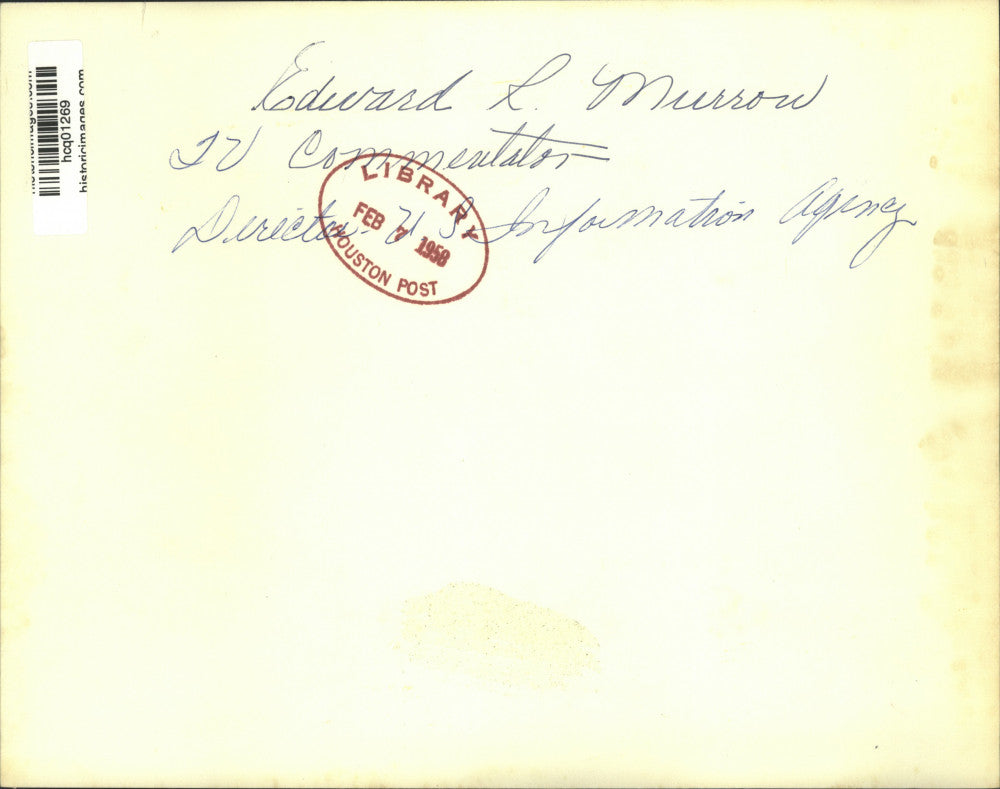 Edward R. Murrow
TV Commentator
Director U S. Information Agency
LIBRARY
FEB 7 1958
HOUSTON POST
hcq01269
historicimages.com
historicimages.com